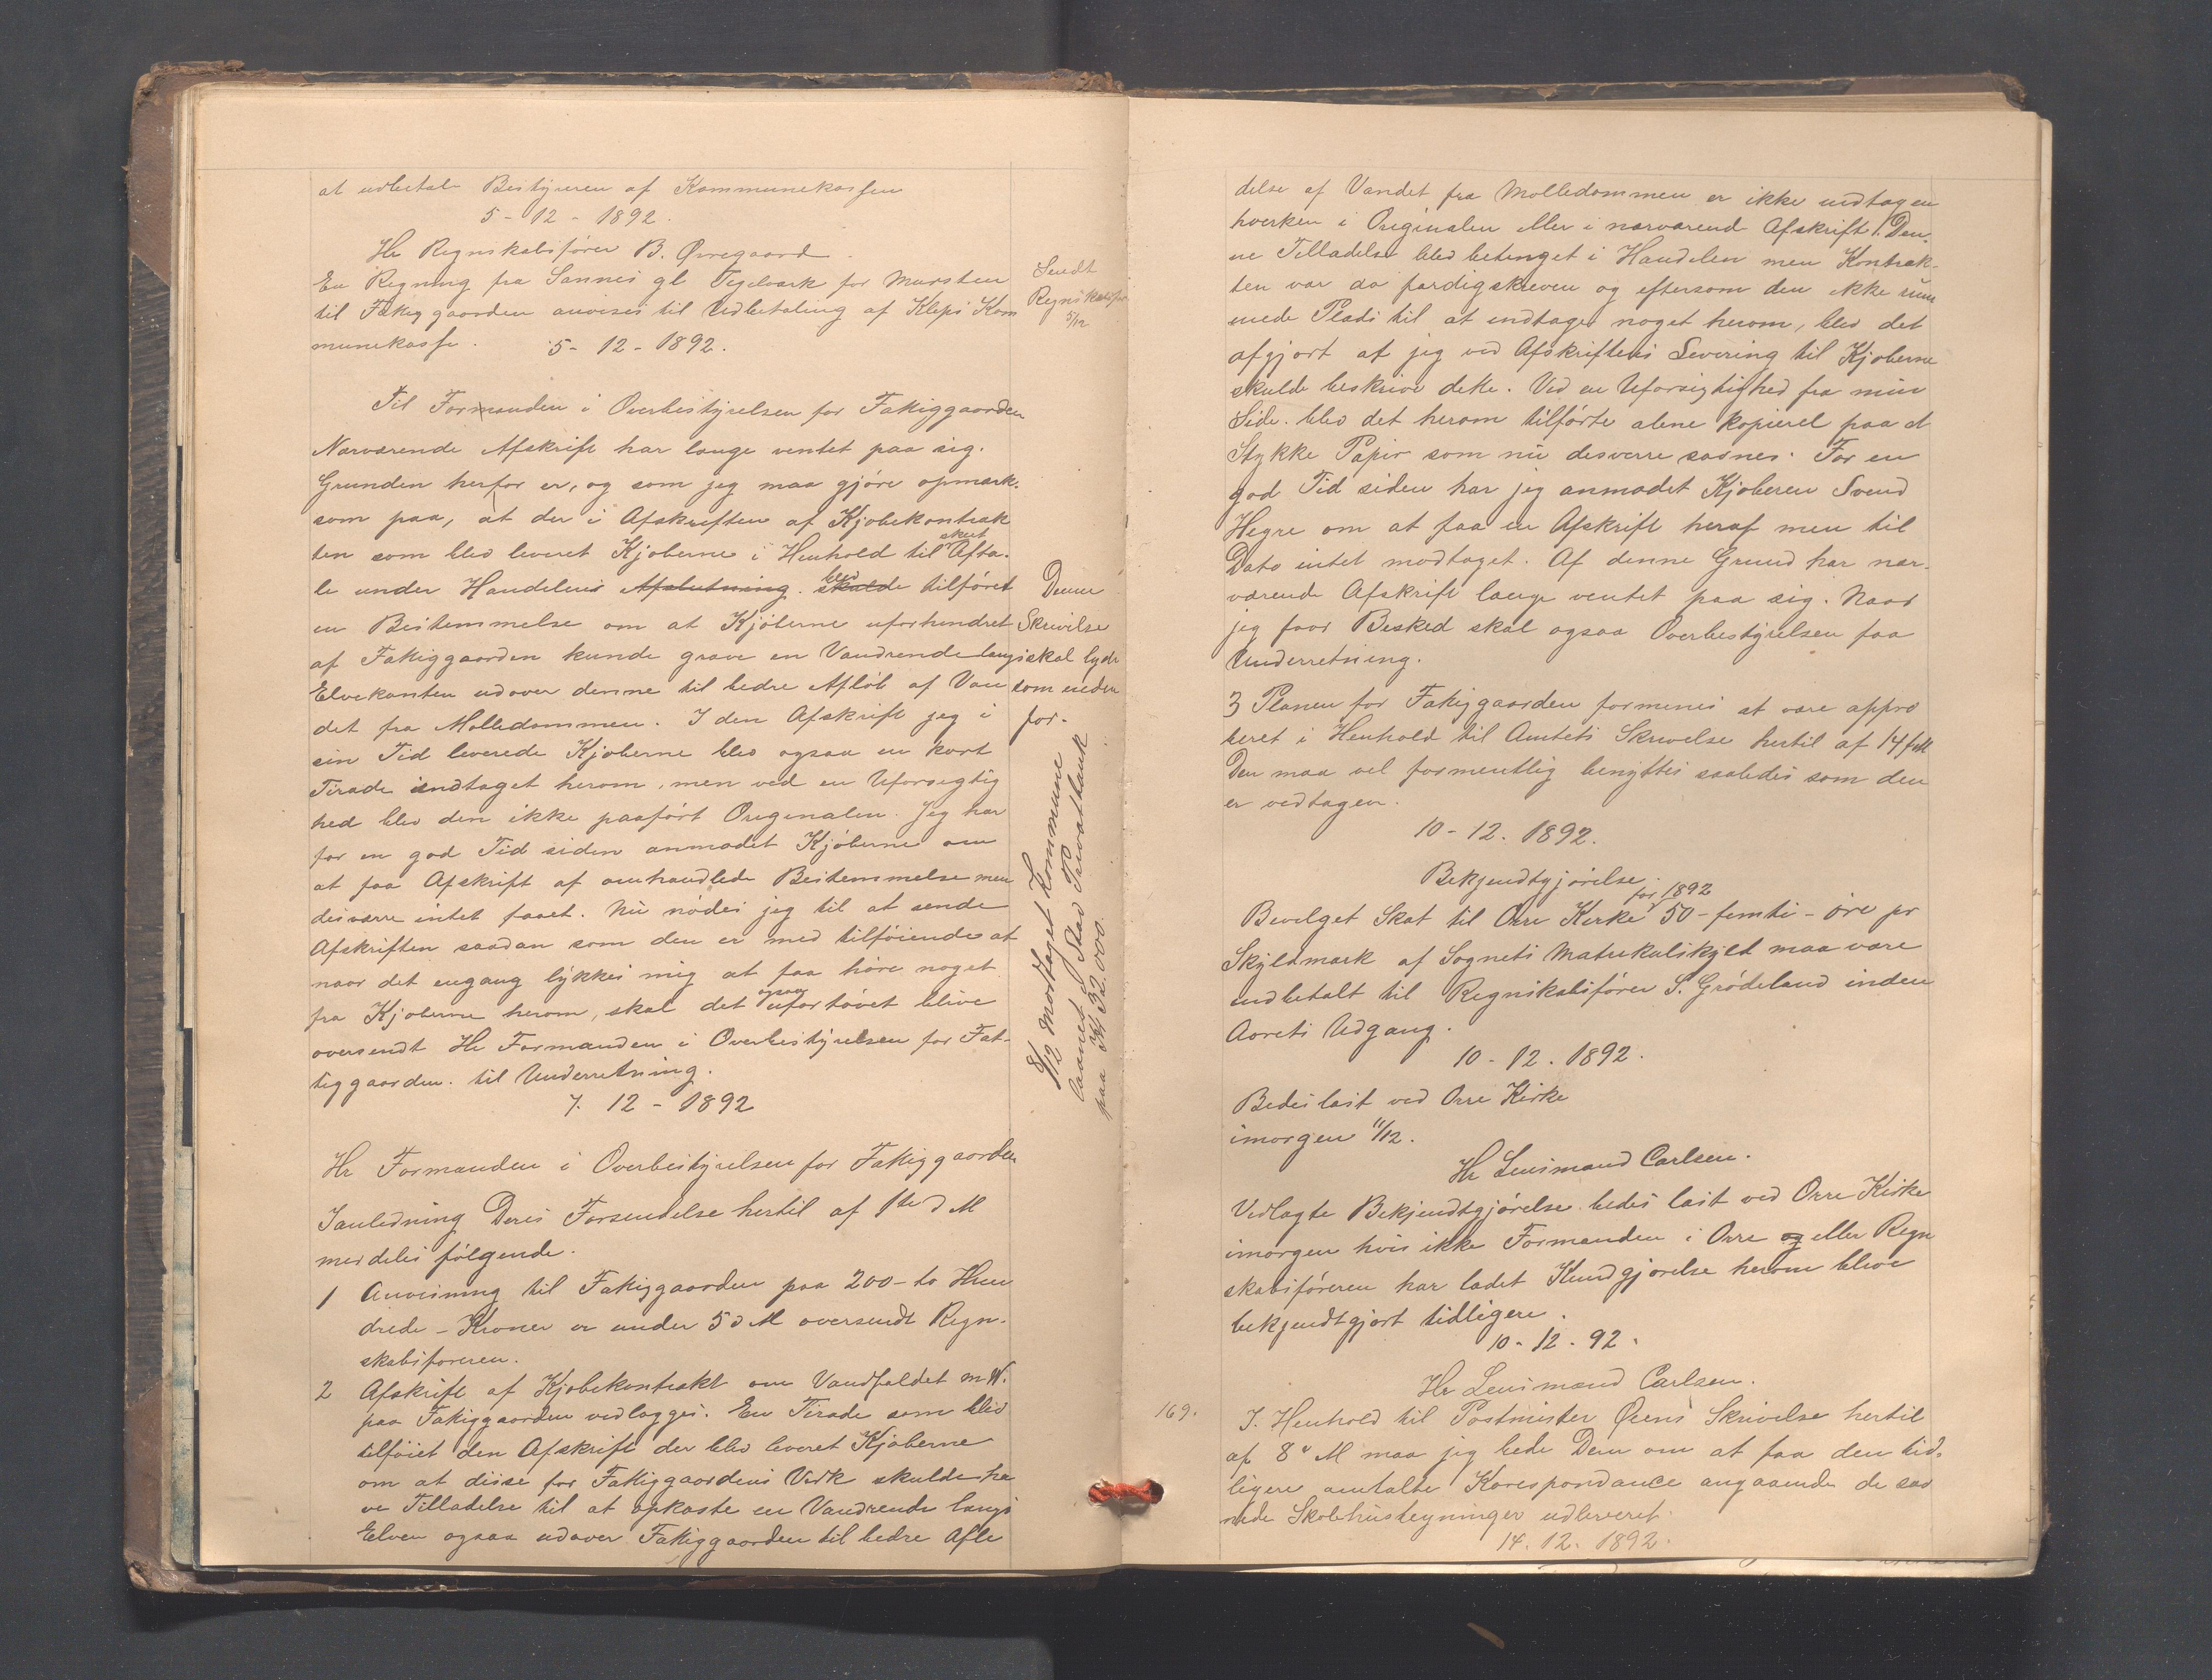 at udbetale Bestyreren af Kommunekassen
5 - 12 - 1892.
Hr Regnskabsfører B. Øvregaard
En Regning fra Sannes gl Teglværk for Mursten
til Fattiggaarden anvises til Udbetaling af Kleps Kom
munekasse. 5 - 12 - 1892.
Sendt
Regnskabsfør
5/12
Til Formanden i Overbestyrelsen for Fattiggaarden
Nærværende Afskrift har længe ventet paa sig.
Grunden herfor er, og som jeg maa gjøre opmærk-
som paa, at der i Afskriften af Kjøbekontrak
ten som blev leveret Kjøberne i Henhold til skeet Afta-
le under Handelens Afslutning. skulde blev tilføret
en Bestemmelse om at Kjøberne uforhindret
af Fattiggaarden kunde grave en Vandrende langs
Elvekanten udover denne til bedre Afløb af Van
det fra Mølledammen. I den Afskrift jeg i
sin Tid leverede Kjøberne blev ogsaa en kort
Tirade indtaget herom, men ved en Uforsigtig
hed blev den ikke paaført Originalen. Jeg har
for en god Tid siden anmodet Kjøberne om
at faa Afskrift af omhandlede Bestemmelse men
desværre intet faaet. Nu nødes jeg til at sende
Afskriften saadan som den er med tilføiende at
naar det engang lykkes mig at faa høre noget
fra Kjøberne herom, skal det ogsaa ufortøvet blive
oversendt Hr Formanden i Overbestyrelsen for Fat-
tiggaarden. til Underretning.
7. 12 - 1892
Denne
Skrivelse
skal lyde
som neden
for.
8/12 Modtaget Kommune
laanet i Stav Privatbank
paa Kr 32.000.
Hr Formanden i Overbestyrelsen for Fattiggaarden
I anledning Deres Forsendelse hertil af 1ste d M
meddeles følgende.
1 Anvisning til Fattiggaarden paa 200 - to Hun
drede - Kroner er under 5 d M oversendt Regn-
skabsføreren.
2 Afskrift af Kjøbekontrakt om Vandfaldet m. V.
paa Fattiggaarden vedlægges. En Tirade som blev
tilføiet den Afskrift der blev leveret Kjøberne
om at disse for Fattiggaardens Vedk skulde ha
ve Tilladelse til at opkaste en Vandrende langs
Elven ogsaa udover Fattiggaarden til bedre Afle
delse af Vandet fra Mølledammen er ikke indtagen
hverken i Originalen eller i nærværende Afskrift. Den-
ne Tilladelse blev betinget i Handelen men Kontrak-
ten var da færdigskreven og eftersom den ikke rum
mede Plads til at indtages noget herom, blev det
afgjort at jeg ved Afskriftens Levering til Kjøberne
skulde beskrive dette. Ved en Uforsigtighed fra min
Side. blev det herom tilførte alene kopieret paa et
Stykke Papir som nu desverre savnes. For en
god Tid siden har jeg anmodet Kjøberen Svend
Hegre om at faa en Afskrift heraf men til
Dato intet modtaget. Af denne Grund har nær-
værende Afskrift længe ventet paa sig. Naar
jeg faar Besked skal ogsaa Overbestyrelsen faa
Underretning.
3 Planen for Fattiggaarden formenes at være appro
beret i Henhold til Amtets Skrivelse hertil af 14 f M
Den maa vel formentlig benyttes saaledes som den
er vedtagen.
10 - 12. 1892.
Bekjendtgjørelse.
Bevilget Skat til Orre Kirke for 1892 50 - femti - øre pr
Skyldmark af Sognets Matrikulskyld maa være
indbetalt til Regnskabsfører S. Grødeland inden
Aarets Udgang.
10 - 12. 1892.
Bedes læst ved Orre Kirke
imorgen 11/12.
Hr Lensmand Carlsen.
Vedlagte Bekjendtgjørelse bedes læst ved Orre Kirke
imorgen hvis ikke Formanden i Orre og eller Regn
skabsføreren har ladet Kundgjørelse herom blive
bekjendtgjort tidligere.
10 - 12 - 92.
Hr Lensmand Carlsen.
169. I. Henhold til Postmester Øiens Skrivelse hertil
af 8 d M maa jeg bede Dem om at faa den tid-
ligere omtalte Korrespondance angaaende de sav
nede Skolehustegninger udleveret.
14. 12. 1892.